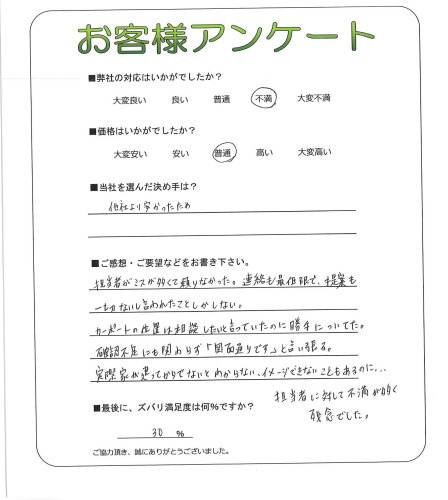 お客様アンケート
■弊社の対応はいかがでしたか?
大変良い 良い 普通 不満 大変不満
■価格はいかがでしたか?
大変安い 安い 普通 高い 大変高い
■当社を選んだ決め手は?
他社より安かったため
■ご感想・ご要望などをお書き下さい。
担当者がミスが多くて頼りなかった。連絡も最低限で、提案も
一切ないし言われたことしかしない。
カーポートの位置は相談したいと言っていたのに勝手についてた。
確認不足にも関わらず「図面通りです」と言い張る。
実際家が建ってからでないとわからない、イメージできないこともあるのに...
担当者に対して不満が多く
残念でした。
■最後に、ズバリ満足度は何%ですか?
30 %
ご協力頂き、誠にありがとうございました。